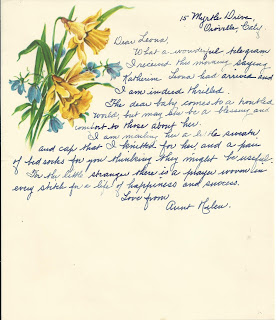 15 Myrtle Drive,
Oroville, Calif.
Dear Leona,
What a wonderful telegram
I received this morning saying
Katherine Leona had arrived and
I am indeed thrilled.
The dear baby comes to a troubled
world, but may she be a blessing and
comfort to those about her.
I am mailing her a little sweater
and cap that I knitted for her, and a pair
of bed socks for you thinking they might be useful.
For the little stranger there is a prayer woven in
every stitch for a life of happiness and success.
Love from
Aunt Helen.